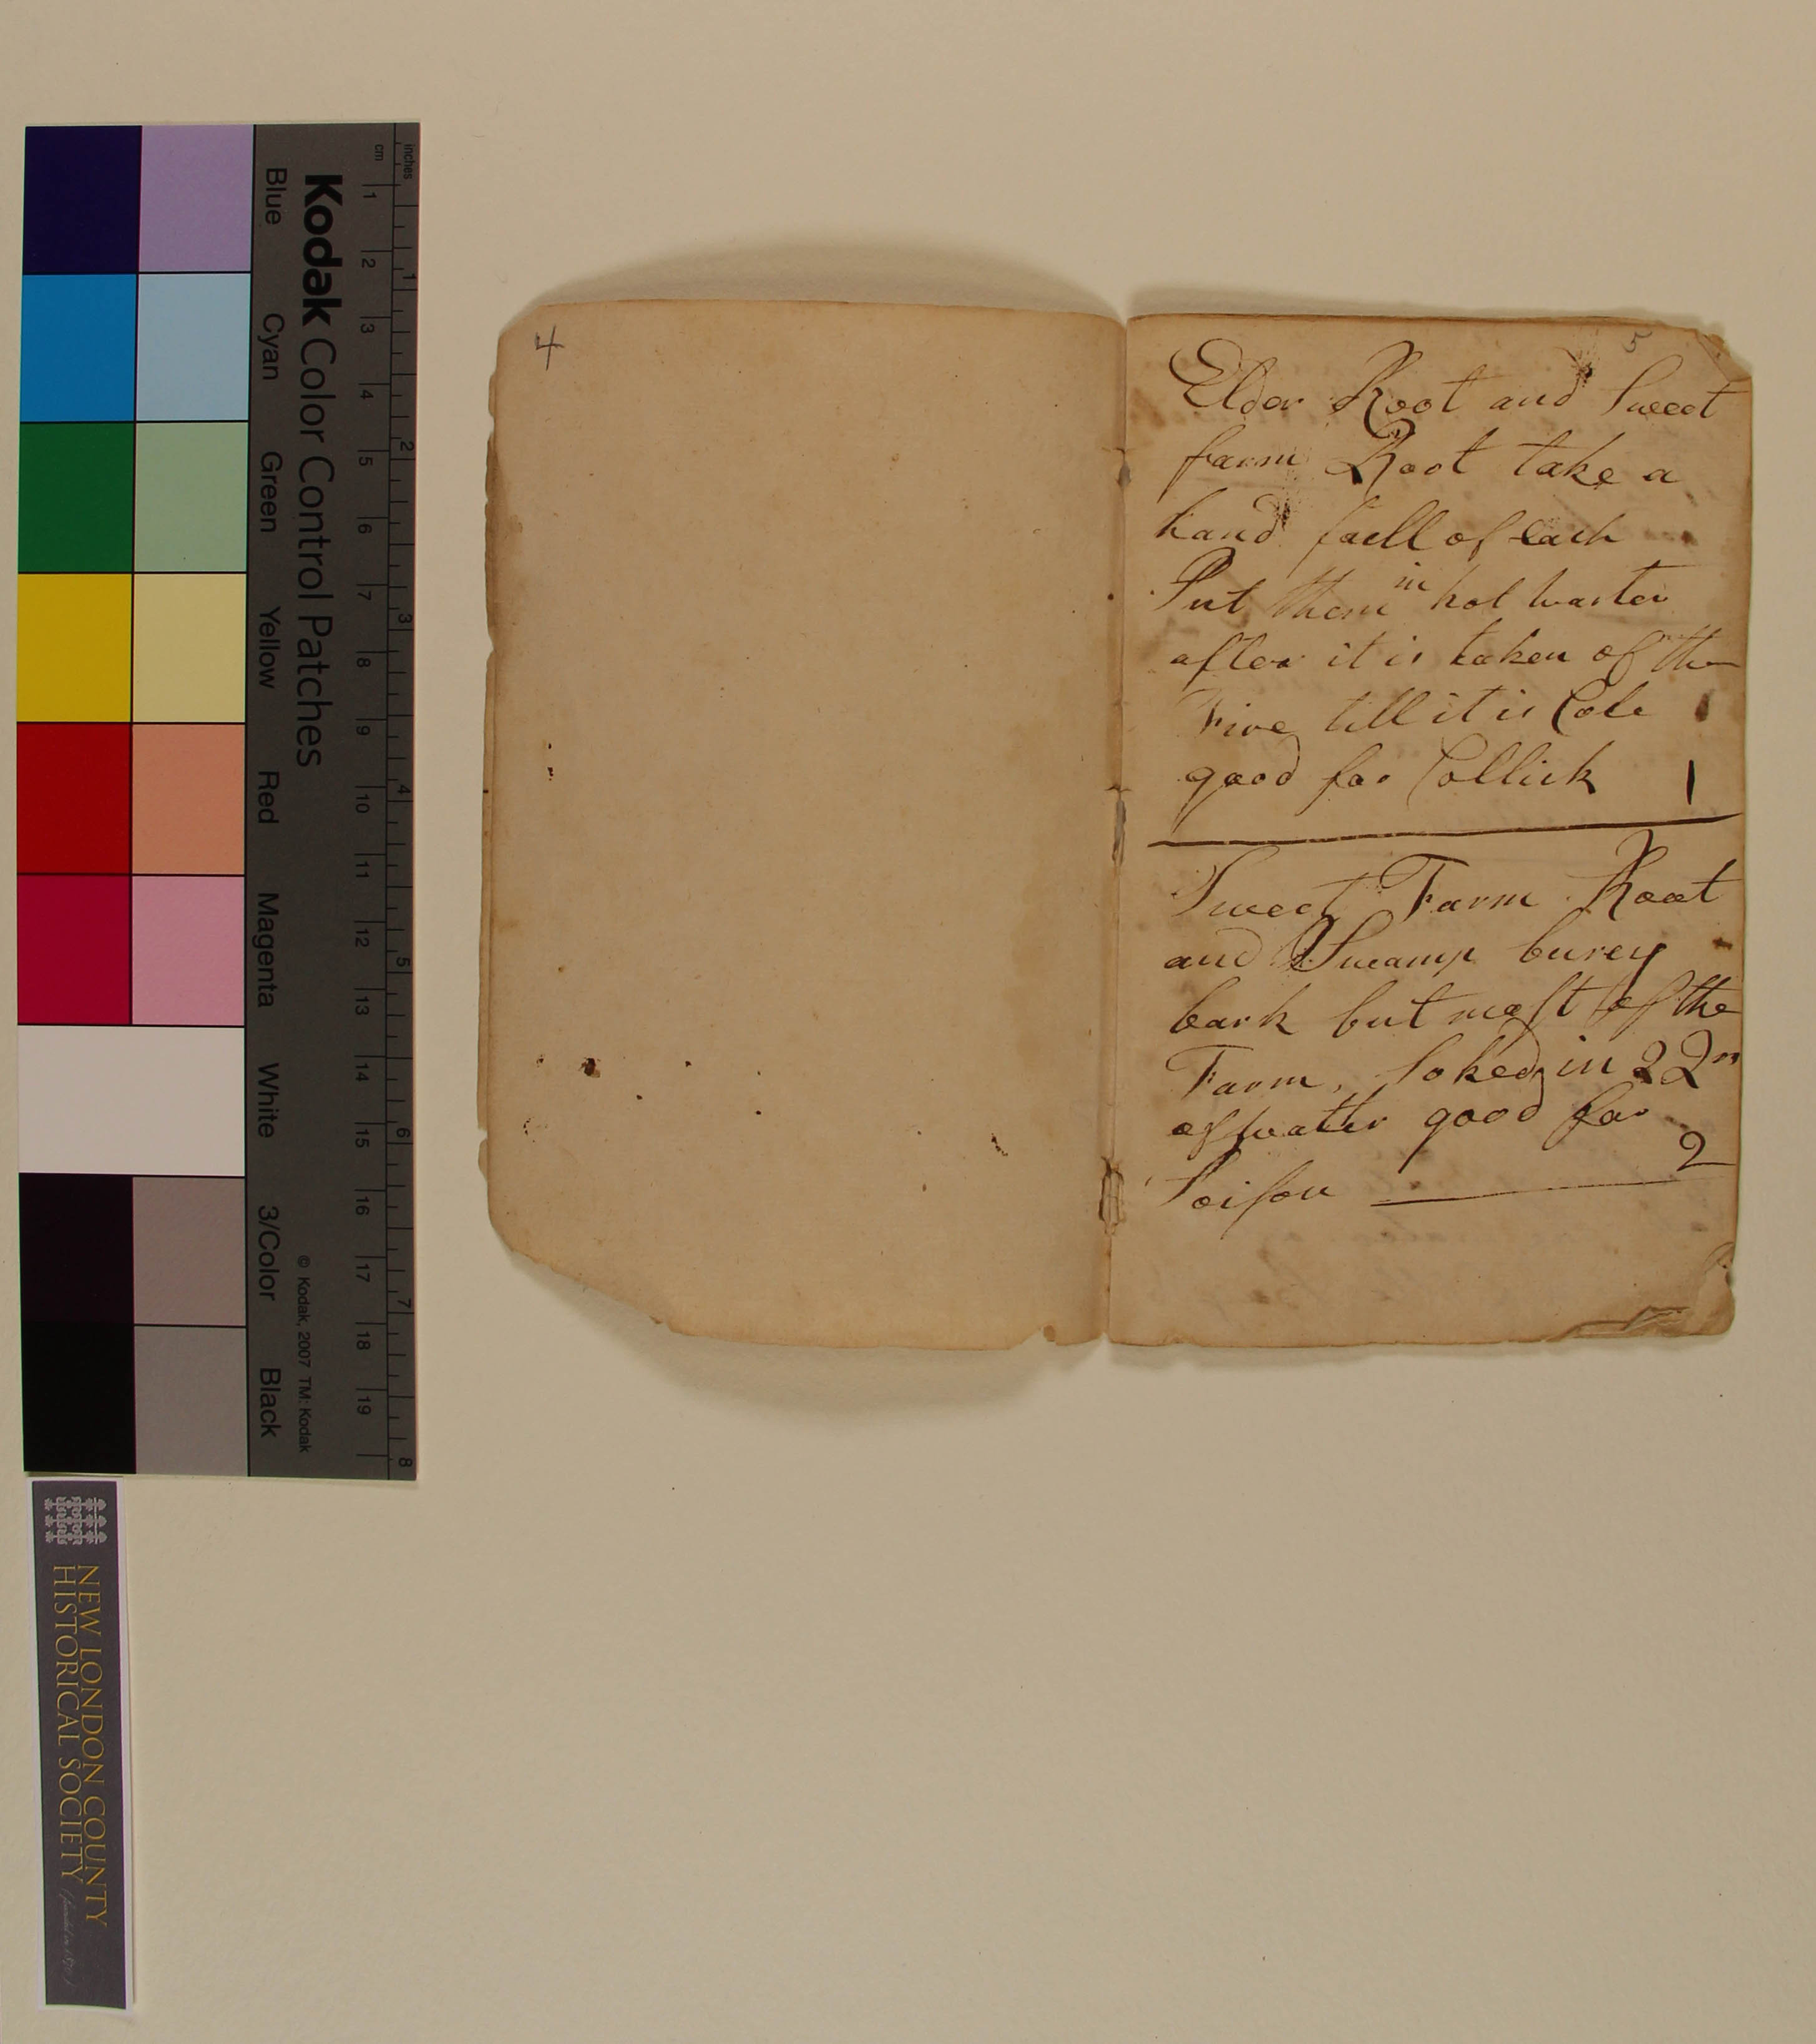 4
5
Elder Root and Sweet
farm Root take a
hand full of Each
Put them in hot warter
after it is taken of the
Fire till it is Cole
good for Collick 1
Sweet Farm Root
and Swamp burey
bark but most of the
Farm, Soked in 2 Qrs
of watter good for
Poison 2
Kodak Color Control Patches
Blue Cyan Green Yellow Red Magenta White 3/Color Black
© Kodak, 2007 TM: Kodak
cm 1 2 3 4 5 6 7 8 9 10 11 12 13 14 15 16 17 18 19
inches 1 2 3 4 5 6 7 8
NEW LONDON COUNTY
HISTORICAL SOCIETY